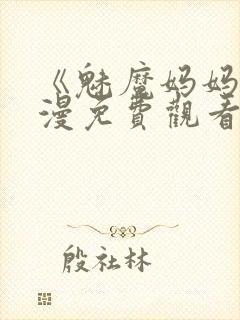 《魅魔妈妈
漫免費觀看
殷社林